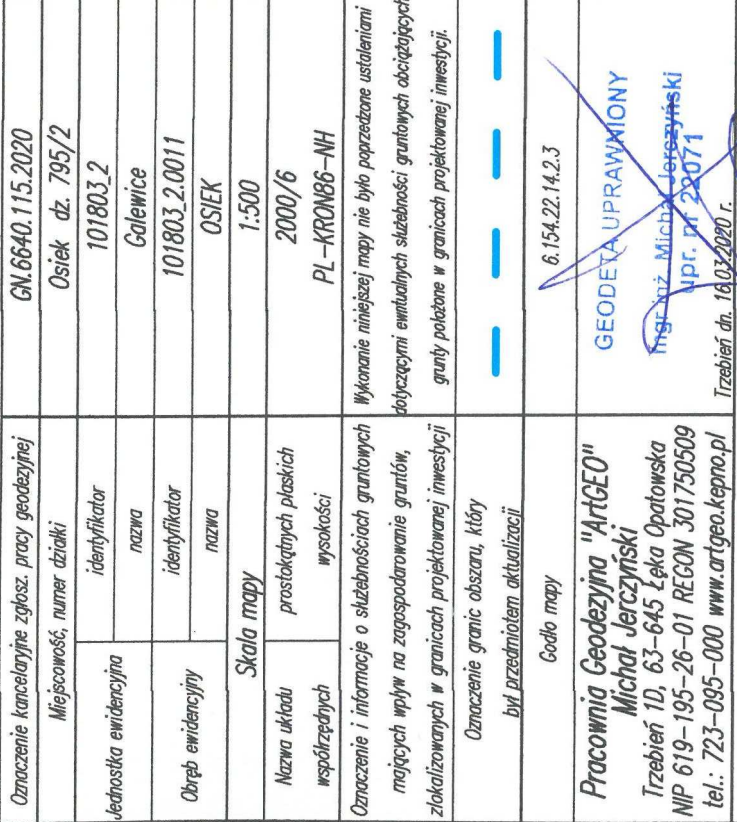 Oznaczenie kancelaryjne zgłosz. pracy geodezyjnej
GN.6640.115.2020
Miejscowość, numer działki
Osiek dz. 795/2
Jednostka ewidencyjna
identyfikator
101803_2
nazwa
Galewice
Obręb ewidencyjny
identyfikator
101803_2.0011
nazwa
OSIEK
Skala mapy
1:500
Nazwa układu
współrzędnych
prostokątnych płaskich
2000/6
wysokości
PL-KRON86-NH
Oznaczenie i informacje o służebnościach gruntowych
mających wpływ na zagospodarowanie gruntów,
zlokalizowanych w granicach projektowanej inwestycji
Wykonanie niniejszej mapy nie było poprzedzone ustaleniami
dotyczącymi ewntualnych służebności gruntowych obciążających
grunty położone w granicach projektowanej inwestycji.
Oznaczenie granic obszaru, który
był przedmiotem aktualizacji
Godło mapy
6.154.22.14.2.3
Pracownia Geodezyjna "ArtGEO"
Michał Jerczyński
Trzebień 1D, 63-645 Łęka Opatowska
NIP 619-195-26-01 REGON 301750509
tel.: 723-095-000 www.artgeo.kepno.pl
GEODETA UPRAWNIONY
mgr inż. Michał Jerczyński
upr. nr 22071
Trzebień dn. 16.03.2020 r.